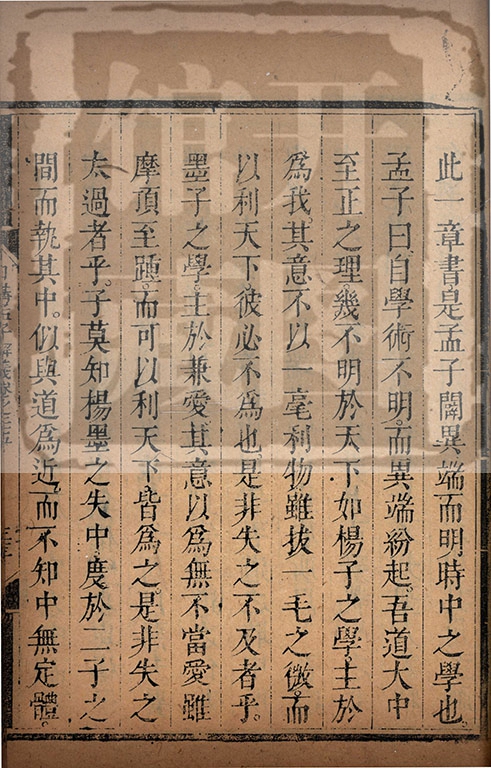 此一章書是孟子闢異端而明時中之學也
孟子曰自學術不明而異端紛起吾道大中
至正之理幾不明於天下如楊子之學主於
爲我其意不以一毫利物雖拔一毛之微而
以利天下彼必不爲也是非失之不及者乎
墨子之學主於兼愛其意以爲無不當愛雖
摩頂至踵而可以利天下皆爲之是非失之
太過者乎子莫知楊墨之失中度於二子之
間而執其中似與道爲近而不知中無定體